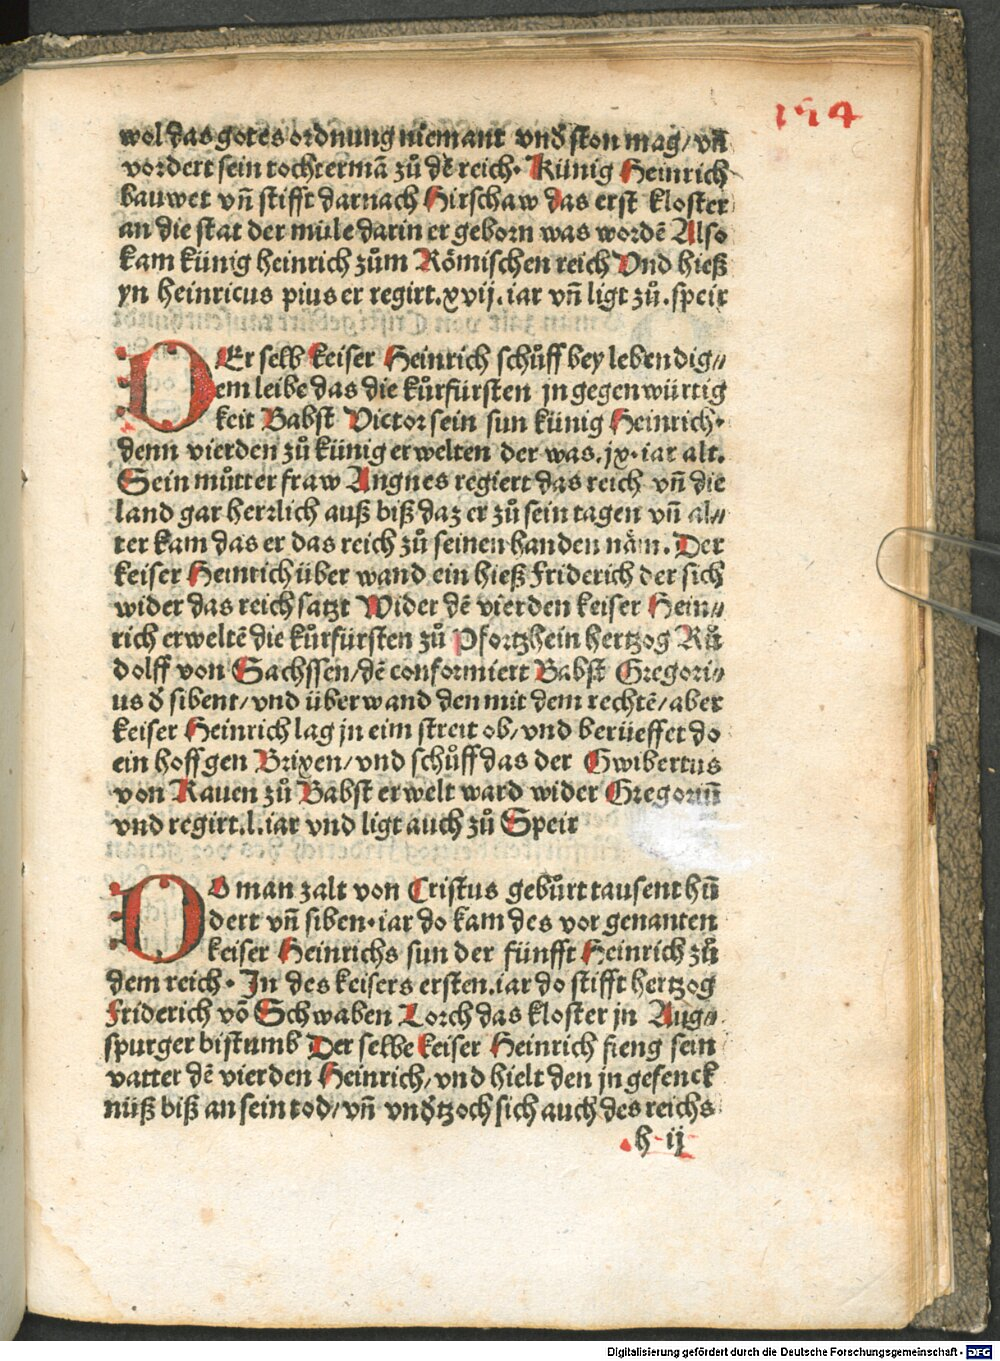 194
wol das gotes ordnung niemant vnd̕ ston mag/ vn̄
vordert sein tochtermā zů dē reich. Künig Heinrich
bauwet vn̄ stifft darnach Hirschaw das erst kloster
an die stat der mule darin er geborn was wordē Also
kam künig heinrich zům Römischen reich Vnd hieß
yn heinricus pius er regirt.xvij.iar vn̄ ligt zů.speir
DEr selb keiser Heinrich schůff bey lebendig//
em leibe das die kůrfürsten jn gegenwürtig
keit Babst Victor sein sun künig Heinrich.
denn vierden zů künig erwelten der was.jx.iar alt.
Sein můtter fraw Angnes regiert das reich vn̄ die
land gar herrlich auß biß daz er zů sein tagen vn̄ al//
ter kam das er das reich zů seinen handen nām. Der
keiser Heinrich über wand ein hieß friderich der sich
wider das reich satzt Wider dē vierden keiser Hein//
rich erweltē die kůrfürsten zů Pfortzhein hertzog Rů
dolff von Sachssen/dē conformiert Babst Gregori//
us d̕ sibent/vnd überwand den mit dem rechtē/aber
keiser Heinrich lag jn eim streit ob/vnd berüeffet do
ein hoff gen Brixen/vnd schůff das der Gwibertus
von Rauen zů Babst erwelt ward wider Gregoriū
vnd regirt.l.iar vnd ligt auch zů Speir
DO man zalt von Cristus gebůrt tausent hū
dert vn̄ siben.iar do kam des vor genanten
keiser Heinrichs sun der fünfft Heinrich zů
dem reich. In des keisers ersten.iar do stifft hertzog
Friderich vō Schwaben Lorch das kloster jn Aug//
spurger bistumb Der selbe keiser Heinrich fieng sein
vatter dē vierden Heinrich/vnd hielt den jn gefenck
nüß biß an sein tod/vn̄ vnd̕tzoch sich auch des reichs
.h ij
Digitalisierung gefördert durch die Deutsche Forschungsgemeinschaft - DFG